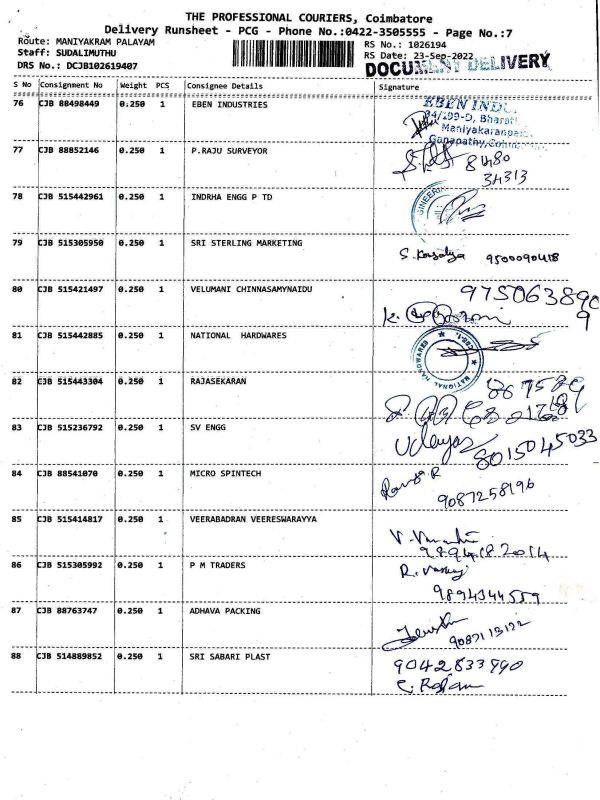 THE PROFESSIONAL COURIERS, Coimbatore
Delivery Runsheet - PCG - Phone No.:0422-3505555 - Page No.:7
Route: MANIYAKRAM PALAYAM
Staff: SUDALIMUTHU
DRS No.: DCJB102619407
RS No.: 1026194
RS Date: 23-Sep-2022
DOCUMENT DELIVERY
S No Consignment No Weight PCS Consignee Details Signature
76 CJB 88498449 0.250 1 EBEN INDUSTRIES
EBEN INDU
84/199-D, Bharati
Maniyakaranpa
Ganapathy, Coim
77 CJB 88852146 0.250 1 P.RAJU SURVEYOR
81480
34313
78 CJB 515442961 0.250 1 INDRHA ENGG P TD
79 CJB 515305950 0.250 1 SRI STERLING MARKETING
S. Kousalya 9500090418
80 CJB 515421497 0.250 1 VELUMANI CHINNASAMYNAIDU
975063890
9
81 CJB 515442885 0.250 1 NATIONAL HARDWARES
NATIONAL HARDWARES
82 CJB 515443304 0.250 1 RAJASEKARAN
83 CJB 515236792 0.250 1 SV ENGG
Udaya
8015045033
84 CJB 88541070 0.250 1 MICRO SPINTECH
9087258196
85 CJB 515414817 0.250 1 VEERABADRAN VEERESWARAYYA
9894182014
86 CJB 515305992 0.250 1 P M TRADERS
9894344559
87 CJB 88763747 0.250 1 ADHAVA PACKING
9087113122
88 CJB 514889852 0.250 1 SRI SABARI PLAST
9042833990